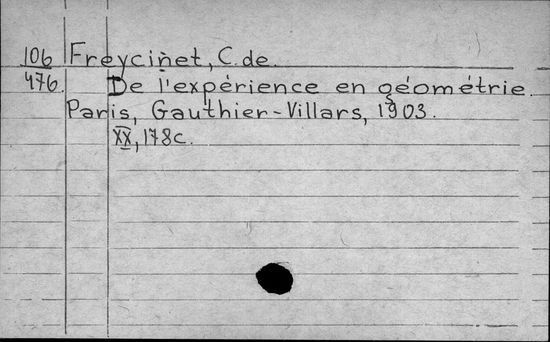 106 Freycinet, C. de.
476. De l'expérience en géométrie.
Paris, Gauthier-Villars, 1903.
XX, 178c.